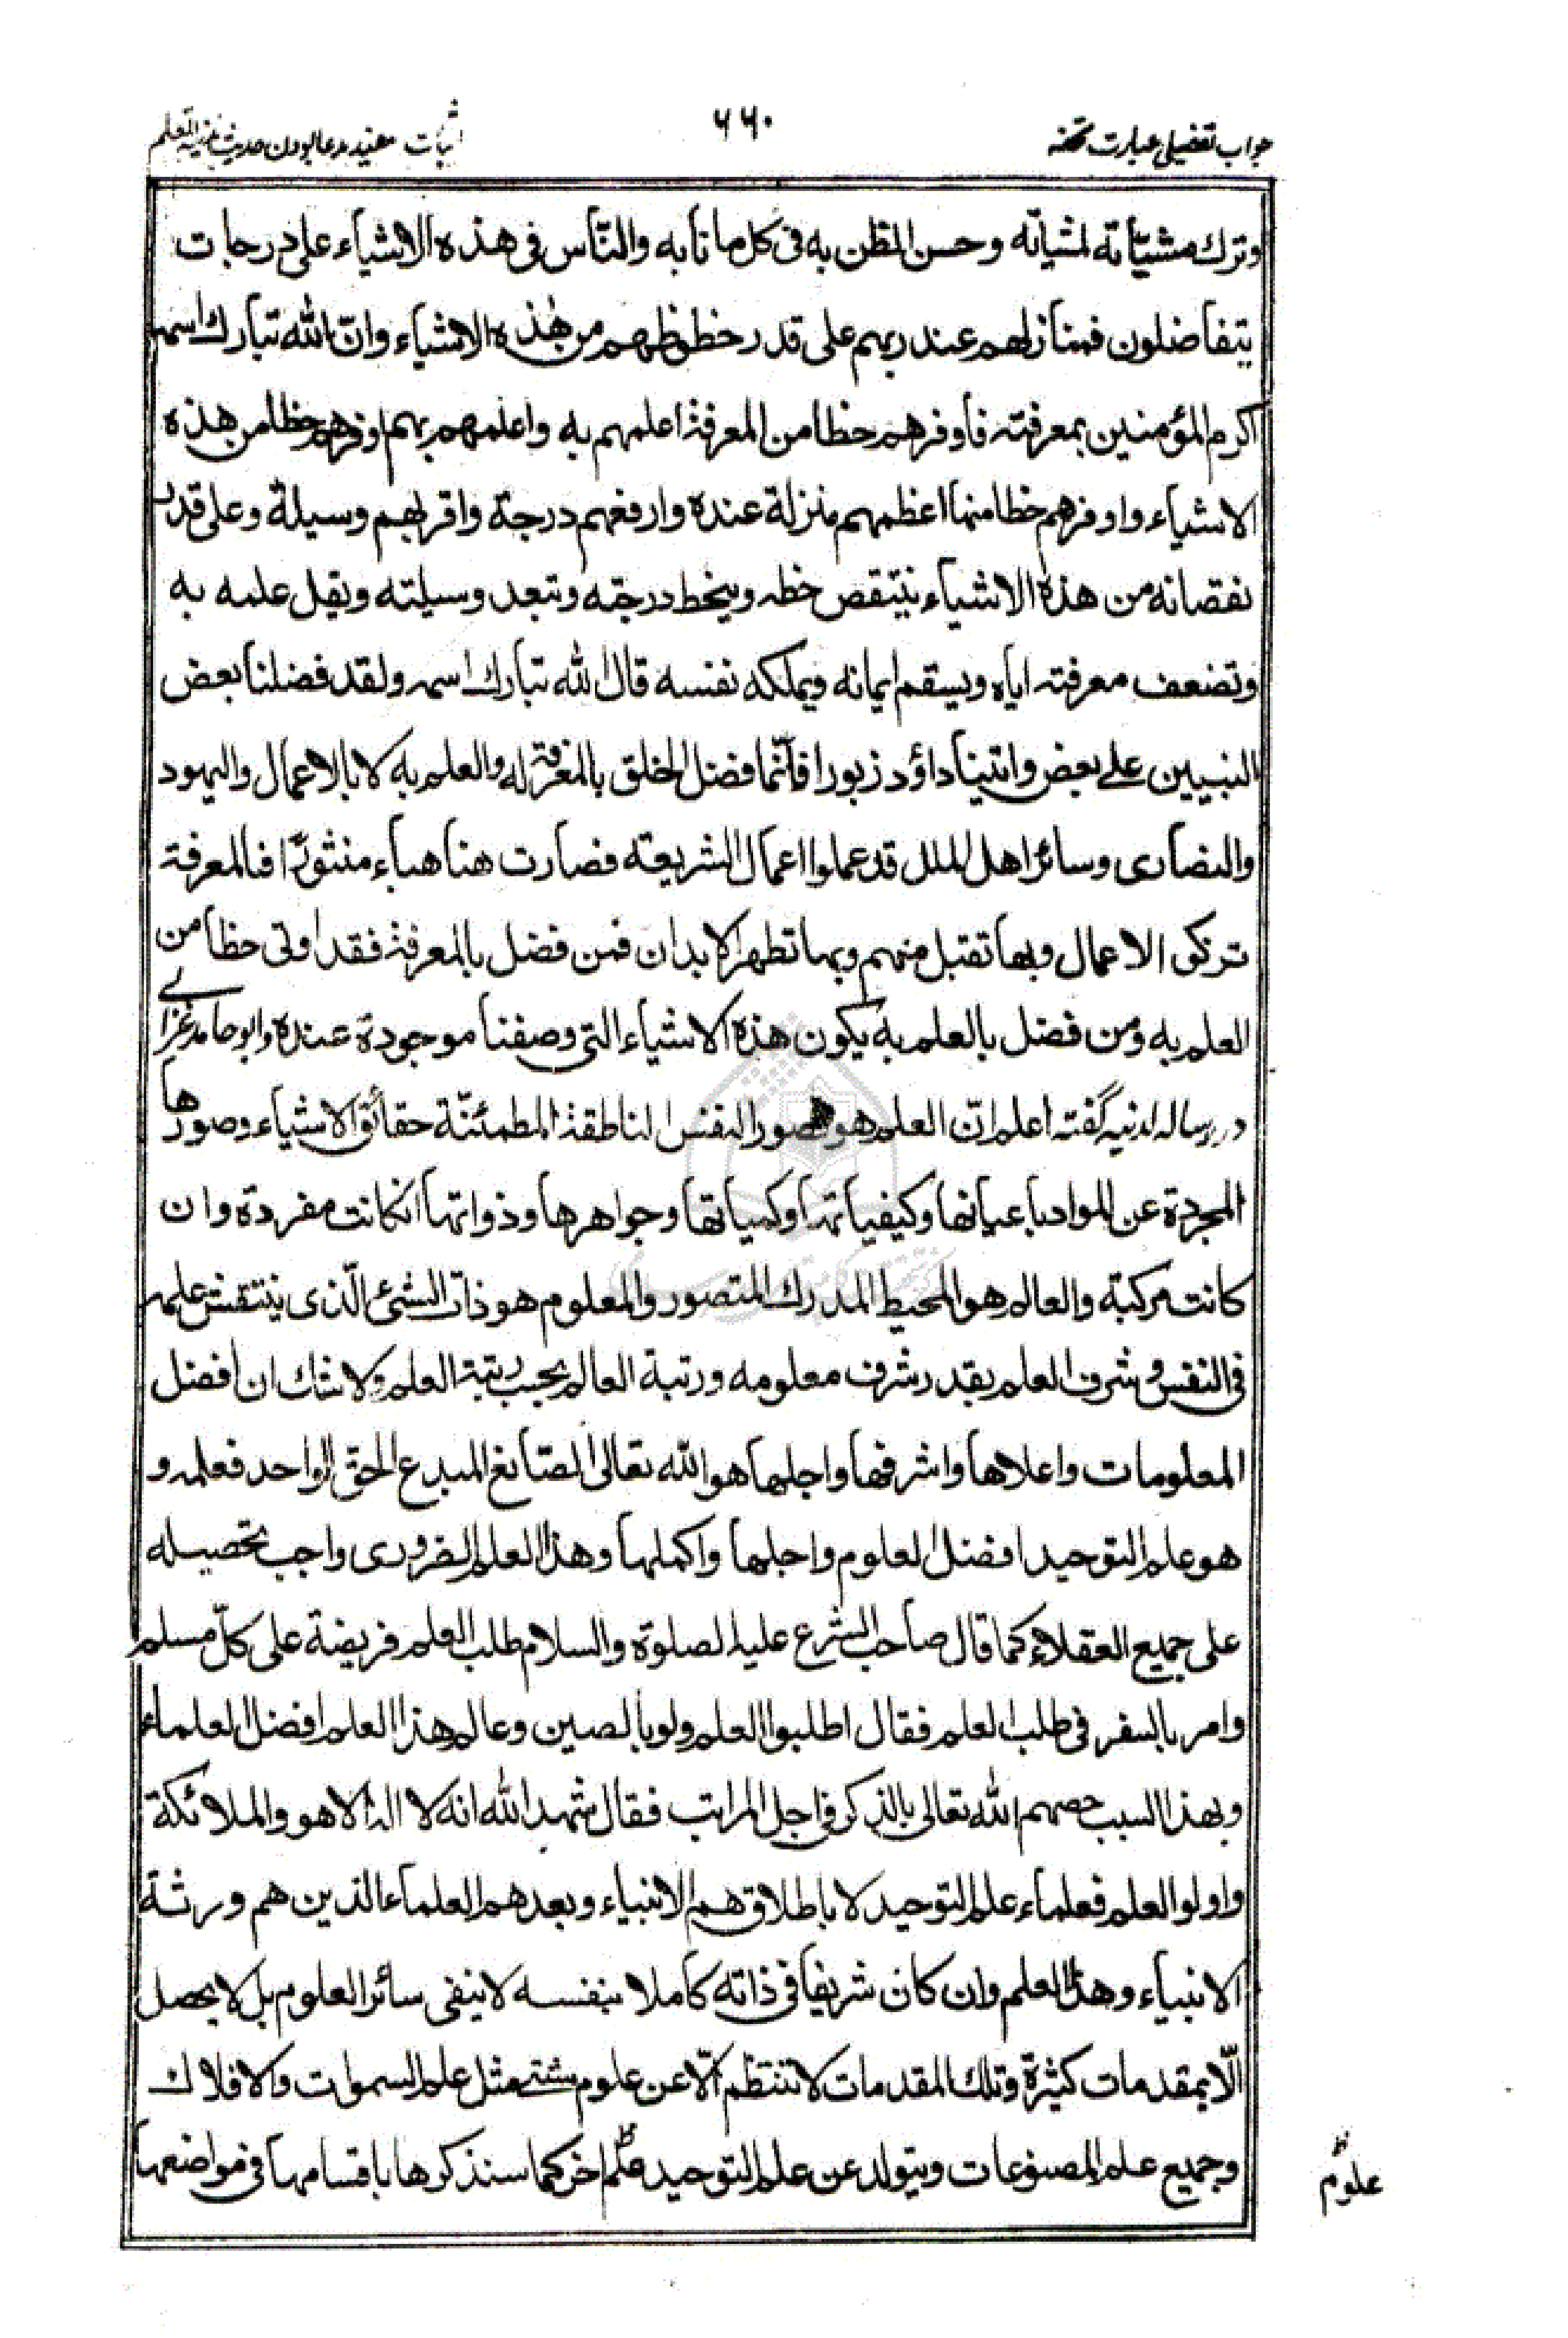 جواب تفصیلی عبارت تحفه
۶۶۰
اثبات مفید مدعا بودن حدیث مدینة العلم
وترك مشيّاته لمشياته وحسن الظن به فى كل ما نابه والنّاس فى هذه الاشياء على درجات
يتفاضلون فمنازلهم عند ربهم على قدر حظوظهم من هذه الاشياء وانّ الله تبارك اسمه
اكرم المؤمنين بمعرفته فأوفرهم حظا من المعرفة اعلمهم به واعلمهم بهم اوفرهم حظا من هذه
الاشياء واوفرهم حظا منها اعظمهم منزلة عنده وارفعهم درجة واقربهم وسيلة وعلى قدر
نقصانه من هذه الاشياء ينتقص حظه وينحط درجته وتبعد وسيلته ويقل علمه به
وتضعف معرفته اياه ويسقم ايمانه ويملكه نفسه قال الله تبارك اسمه ولقد فضلنا بعض
النبيين على بعض واتينا داؤد زبورا فأنّما فضل الخلق بالمعرفة له والعلم به لا بالاعمال واليهود
والنصارى وسائر اهل الملل قد عملوا اعمال الشريعة فصارت هنا هباء منثورًا فالمعرفة
تزكى الاعمال وبها تقبل منهم وبها تطهر الابدان فمن فضل بالمعرفة فقد اوتى حظا من
العلم به ومن فضل بالعلم به يكون هذه الاشياء التى وصفنا موجودة عنده وابو حامد غزالے
در رساله لدنيه گفته اعلم انّ العلم هو تصور النفس الناطقة المطمئنّة حقائق الاشياء وصورها
المجردة عن المواد باعيانها وكيفياتها وكمياتها وجواهرها وذواتها انكانت مفردة وان
كانت مركبة والعالم هو المحيط المدرك المتصور والمعلوم هو ذات الشئ الّذى ينتقش علمه
فى النفس وشرف العلم بقدر شرف معلومه ورتبة العالم بحسب رتبة العلم ولا شك ان افضل
المعلومات واعلاها واشرفها واجلها هو الله تعالى الصّانع المبدع الحق الواحد فعلمه و
هو علم التوحيد افضل العلوم واجلها واكملها وهذا العلم الضرورى واجب تحصيله
على جميع العقلاء كما قال صاحب الشرع عليه الصلوة والسلام طلب العلم فريضة على كلّ مسلم
وامر بالسفر فى طلب العلم فقال اطلبوا العلم ولو بالصين وعالم هذا العلم افضل العلماء
وبهذا السبب خصهم الله تعالى بالذكر فى اجل المراتب فقال شهد الله انه لا اله الا هو والملائكة
واولوا العلم فعلماء علم التوحيد لا باطلاق هم الانبياء وبعدهم العلماء الذين هم ورثة
الانبياء وهذا العلم وان كان شريفا فى ذاته كاملا بنفسه لا ينفى سائر العلوم بل لا يحصل
الّا بمقدمات كثيرة وتلك المقدمات لا تنتظم الّا عن علوم شتے مثل علم السموات والافلاك
وجميع علم المصنوعات ويتولد عن علم التوحيد علم اخر كما سنذكرها باقسامها فى مواضعها
علوم ظ